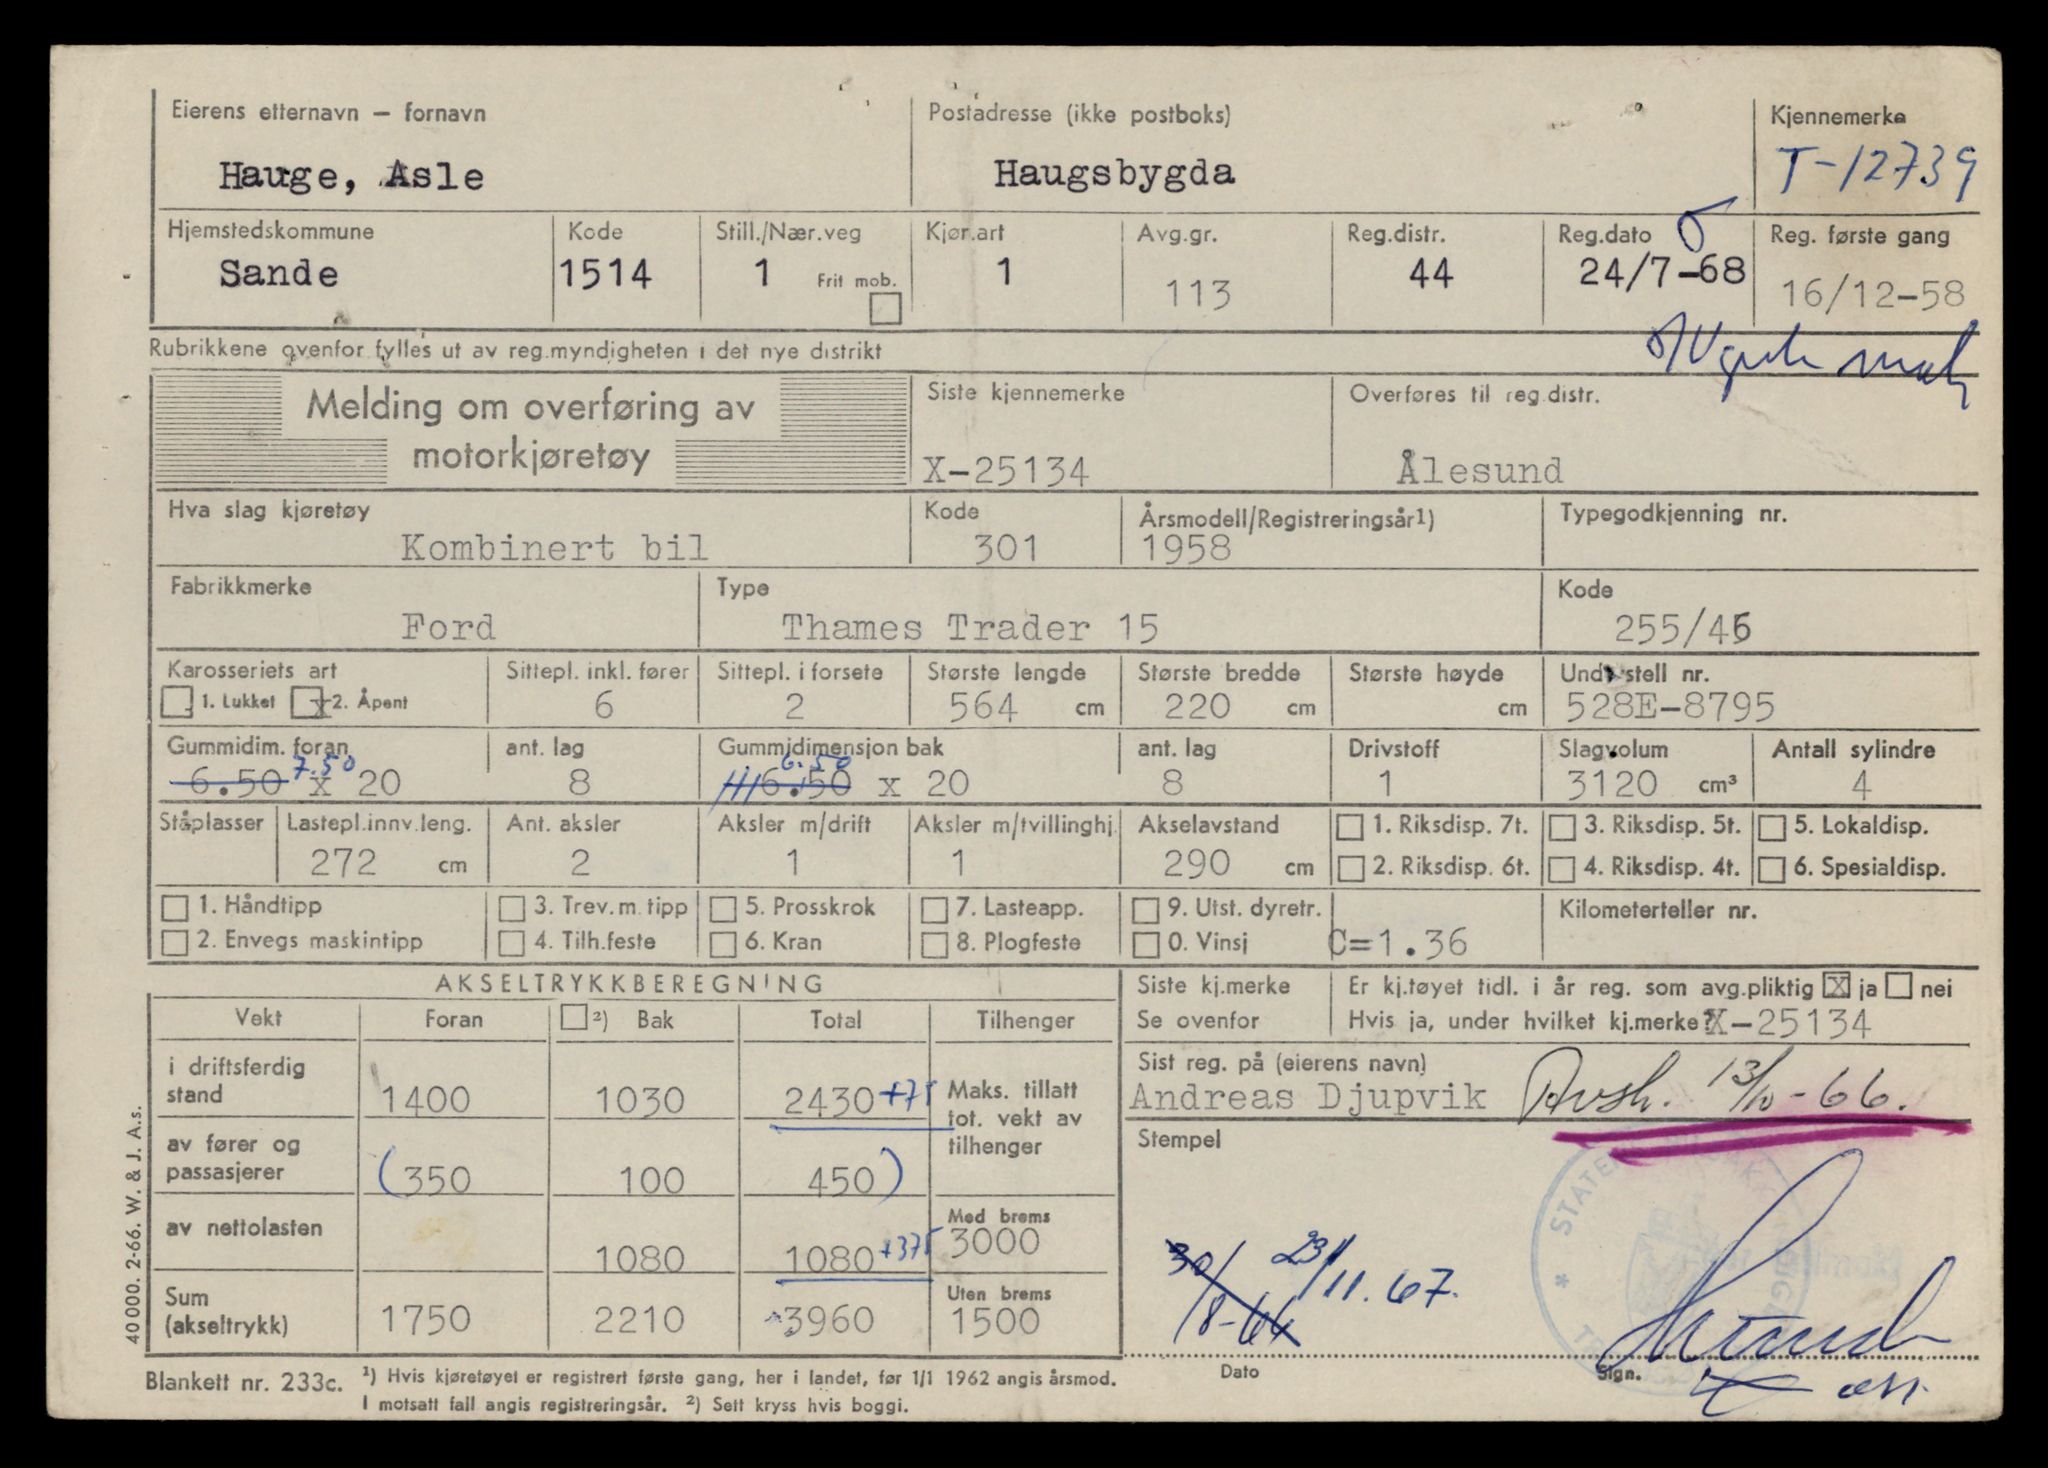 Eierens etternavn — fornavn
Hauge, Asle
Postadresse (ikke postboks)
Haugsbygda
Kjennemerke
T-12739
Hjemstedskommune
Sande
Kode
1514
Still./Nær.veg
1 Frit mob.
Kjør.art
1
Avg.gr.
113
Reg.distr.
44
Reg.dato
24/7-68
Reg. første gang
16/12-58
Rubrikkene ovenfor fylles ut av reg.myndigheten i det nye distrikt
Melding om overføring av
motorkjøretøy
Siste kjennemerke
X-25134
Overføres til reg.distr.
Ålesund
Hva slag kjøretøy
Kombinert bil
Kode
301
Årsmodell/Registreringsår1)
1958
Typegodkjenning nr.
Fabrikkmerke
Ford
Type
Thames Trader 15
Kode
255/45
Karosseriets art
1. Lukket x 2. Åpent
Sittepl. inkl. fører
6
Sittepl. i forsete
2
Største lengde
564 cm
Største bredde
220 cm
Største høyde
cm
Understell nr.
528E-8795
Gummidim. foran
7.50
6.50 x 20
ant. lag
8
Gummidimensjon bak
6.50
6.50 x 20
ant. lag
8
Drivstoff
1
Slagvolum
3120 cm³
Antall sylindre
4
Ståplasser
Lastepl.innv.leng.
272 cm
Ant. aksler
2
Aksler m/drift
1
Aksler m/tvillinghj.
1
Akselavstand
290 cm
1. Riksdisp. 7t.
2. Riksdisp. 6t.
3. Riksdisp. 5t.
4. Riksdisp. 4t.
5. Lokaldisp.
6. Spesialdisp.
1. Håndtipp
2. Envegs maskintipp
3. Trev.m.tipp
4. Tilh.feste
5. Prosskrok
6. Kran
7. Lasteapp.
8. Plogfeste
9. Utst. dyretr.
0. Vinsj
C=1.36
Kilometerteller nr.
AKSELTRYKKBEREGNING
Vekt Foran ²) Bak Total Tilhenger
i driftsferdig
stand
1400 1030 2430 +75
Maks. tillatt
tot. vekt av
tilhenger
av fører og
passasjerer
(350 100 450)
av nettolasten
1080 1080 +375
Med brems
3000
Sum
(akseltrykk)
1750 2210 3960
Uten brems
1500
Siste kj.merke
Se ovenfor
Er kj.tøyet tidl. i år reg. som avg.pliktig X ja nei
Hvis ja, under hvilket kj.merke? X-25134
Sist reg. på (eierens navn)
Andreas Djupvik Avsk. 13/10-66.
Stempel
30/8-66
23/11.67.
Dato
Sign.
40000. 2-66. W. & J. A.s.
Blankett nr. 233c.
¹) Hvis kjøretøyet er registrert første gang, her i landet, før 1/1 1962 angis årsmod.
I motsatt fall angis registreringsår. ²) Sett kryss hvis boggi.